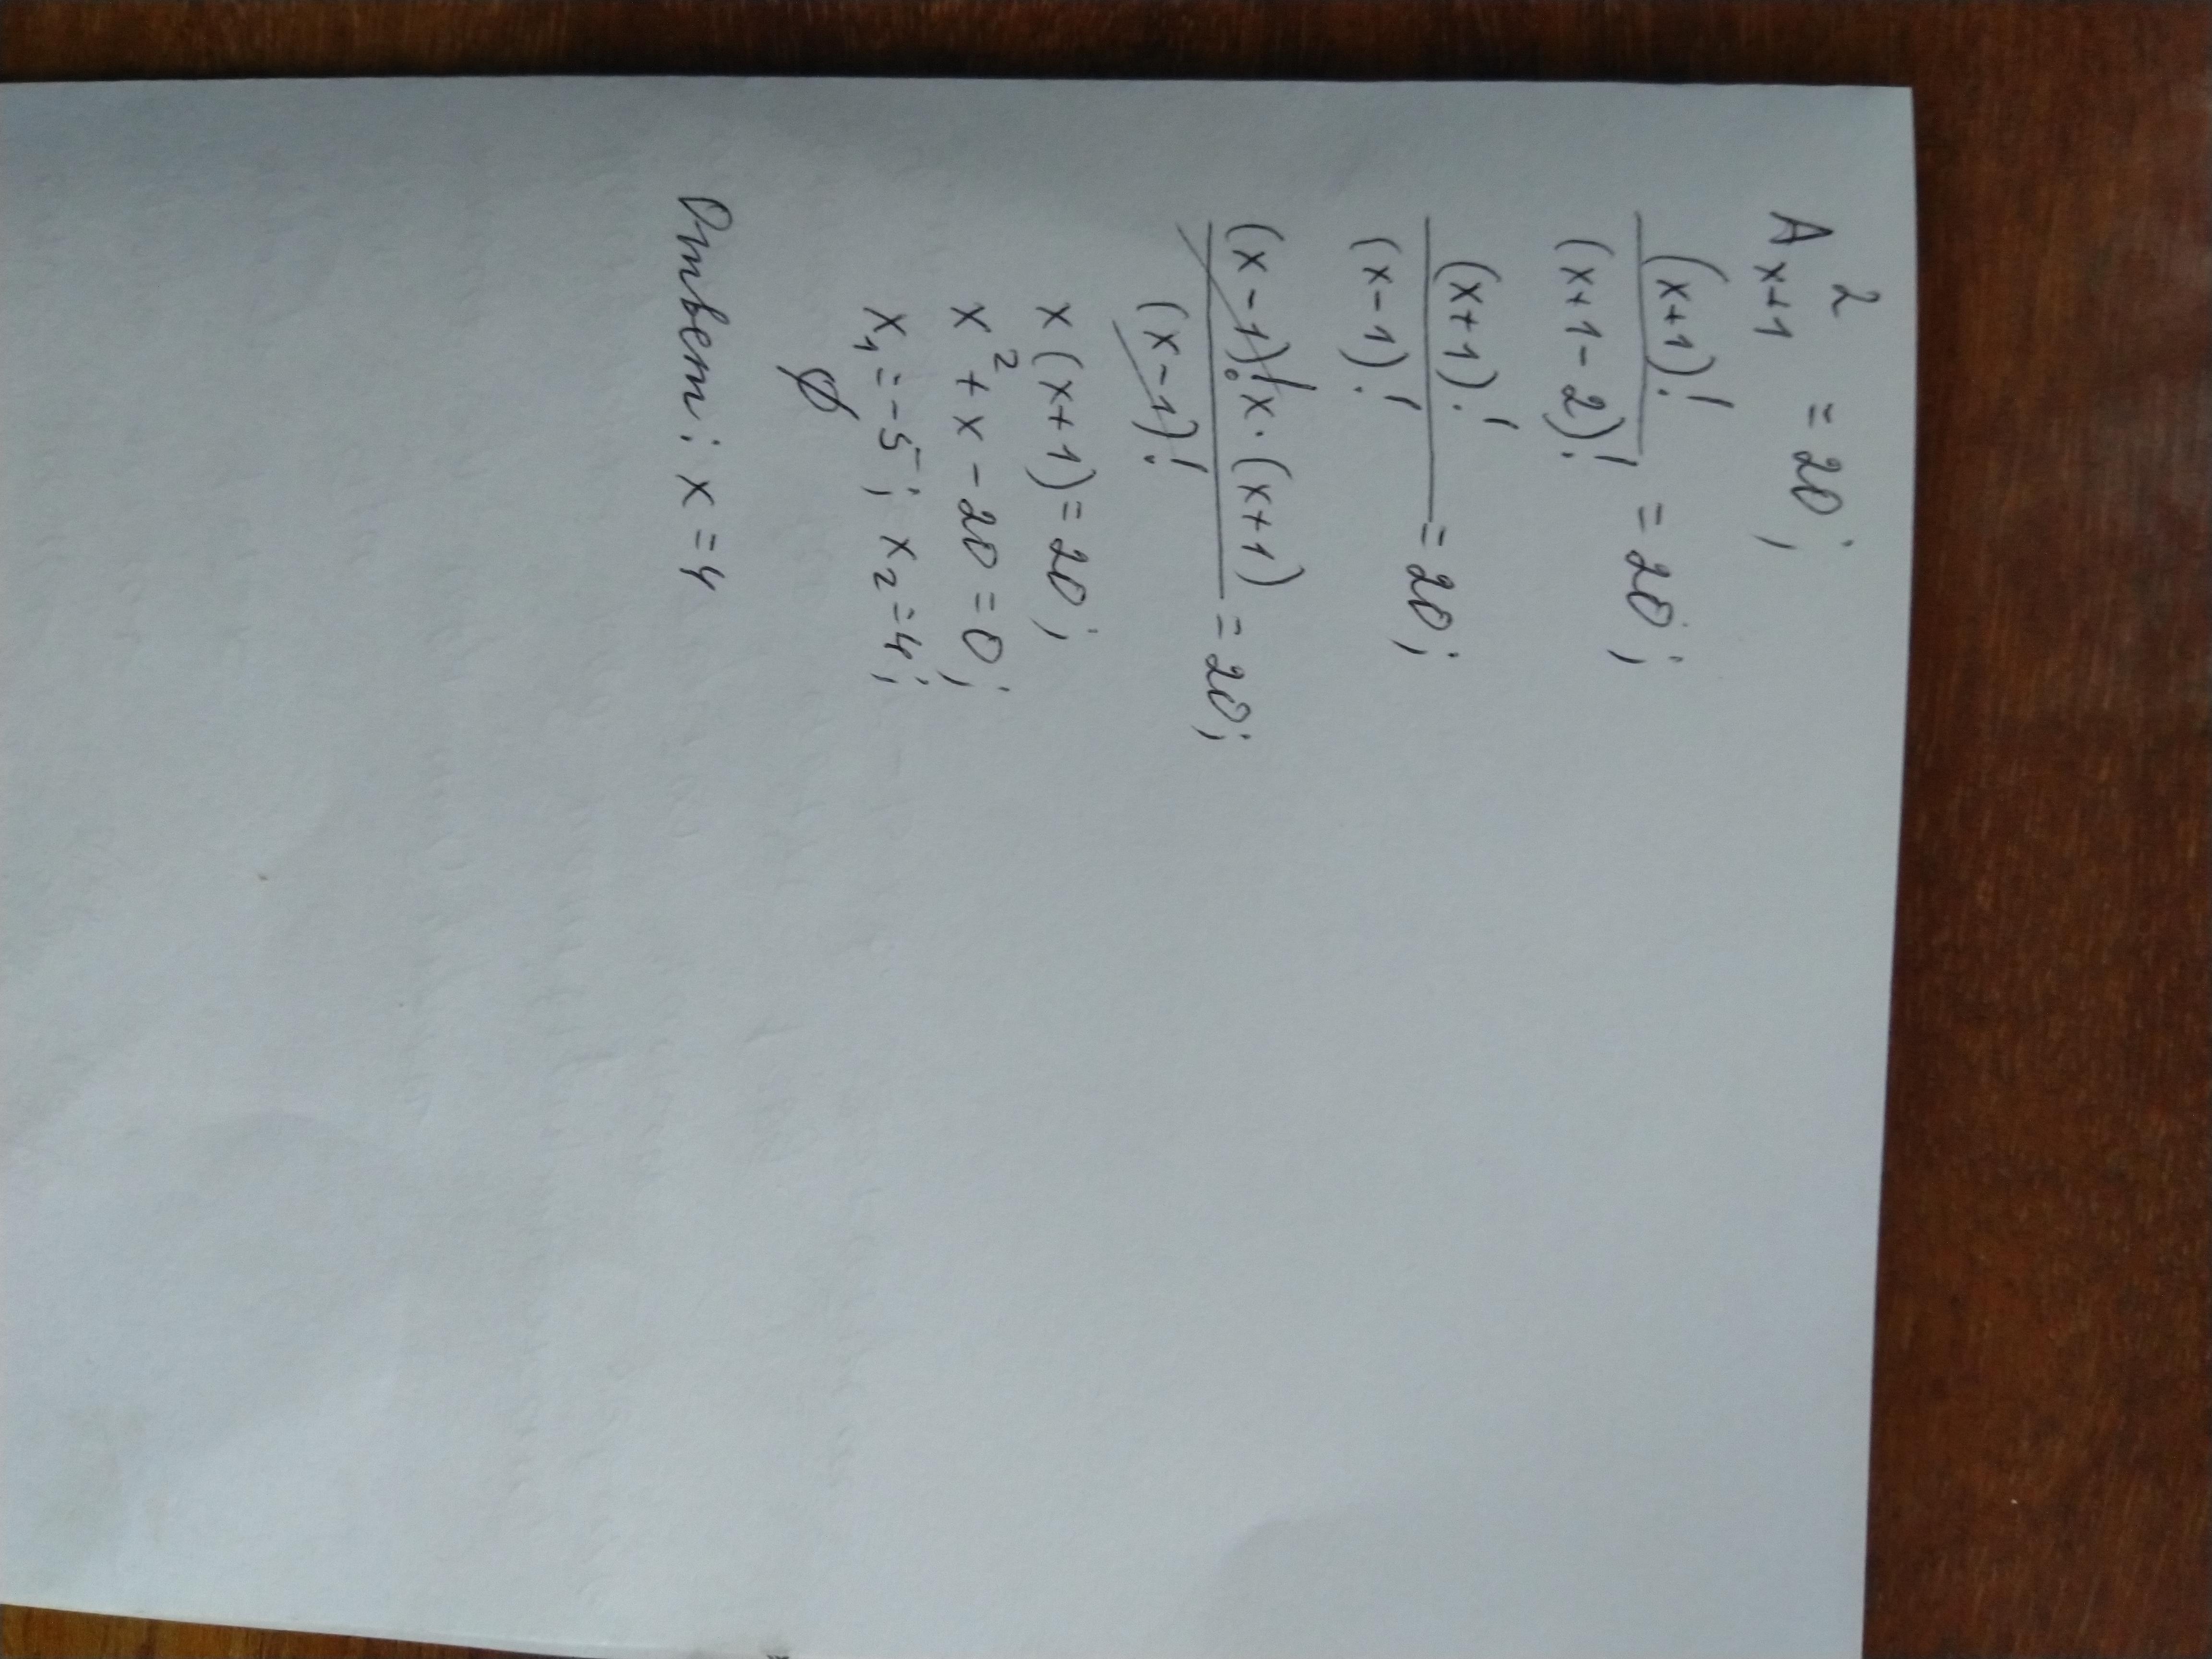 A²ₓ₊₁ = 20;
(x+1)! / (x+1-2)! = 20;
(x+1)! / (x-1)! = 20;
(x-1)!·x·(x+1) / (x-1)! = 20;
x(x+1)=20;
x²+x-20=0;
x₁=-5; x₂=4;
∅
Ответ: x=4